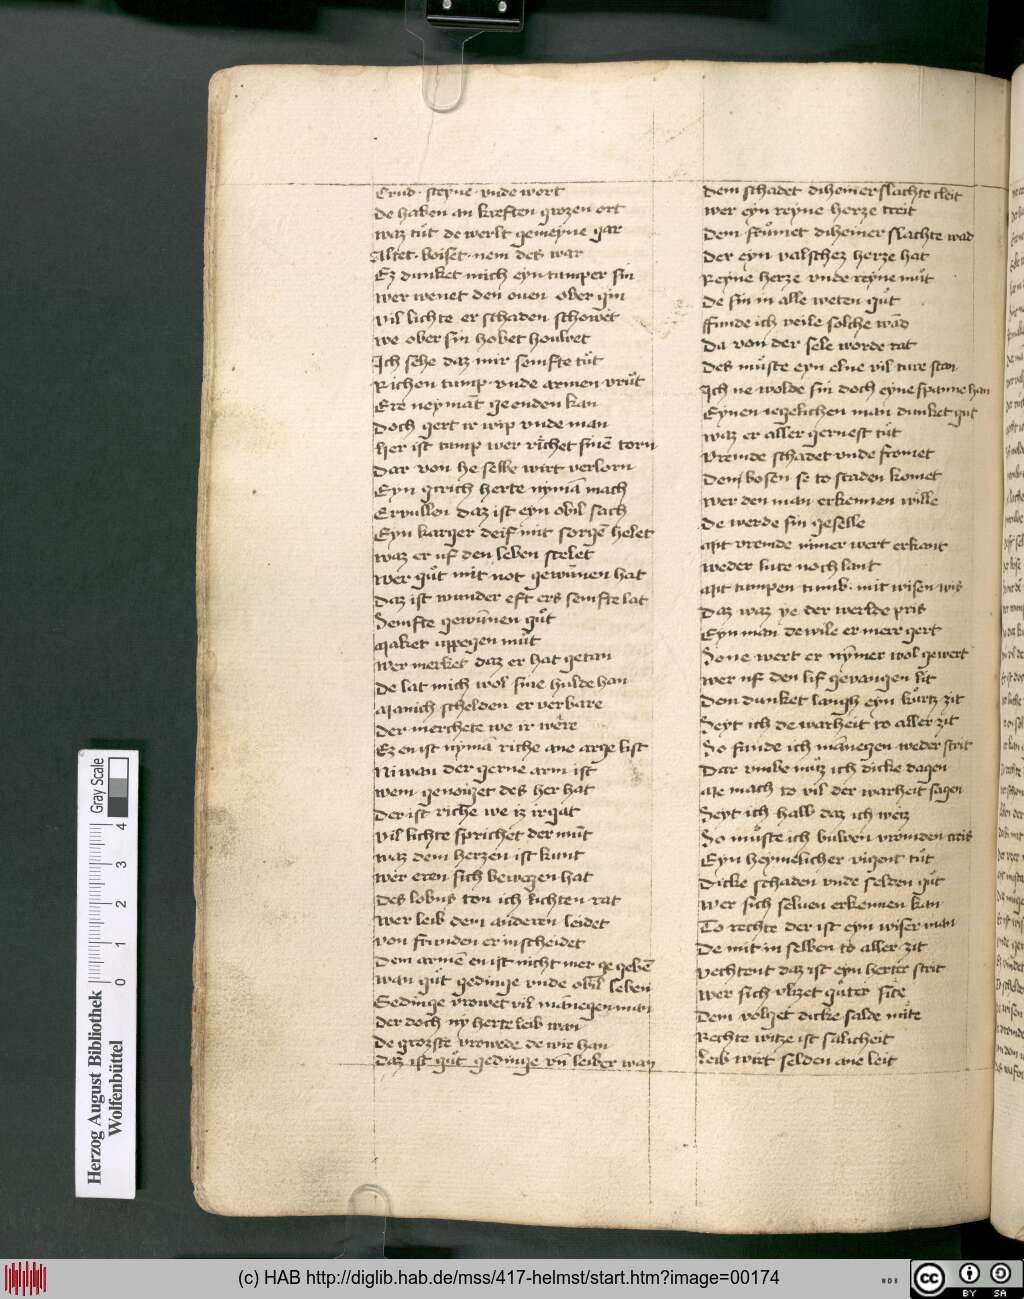 Crud · steyne · vnde wort
De haben an kreften grozen ort
Waz tuͦt de werlt gemeyne gar
Altet · boiset · nem des war
Ez dunket mich eyn tumper sin
Wer wenet den ouen ober gin
Vil lichte er schaden schowet
We ober sin hobet houwet
Ich sehe daz mir semfte tuͦt
Richen tump · vnde armen vruͦt
Ere neymāt geenden kan
Doch gert ir wip vnde man
Her ist tump wer richet sinē torn
Dar von he selbe wirt verlorn
Eyn gtrich herte nymā mach
Ervullen daz ist eyn obil sach
Eyn karger deif mit sorgē helet
Waz er uf den leben stelet
Wer guͦt mit not gewūnen hat
Daz ist wunder eft ers semfte lat
Semfte gewūnen guͦt
Maket uppegen muͦt
Wer merket daz er hat getan
De lat mich wol sine hulde han
Manich schelden er verbare
Der merchete we ir were
Ez en ist nymā riche ane arge list
Niwan der gerne arm ist
Wem genoiget des her hat
Der ist riche we iz irgat
Vil lichte sprichet der muͦt
Waz dem herzen ist kunt
Wer eren sich bewegen hat
Des lobus ton ich lichten rat
Wer leib dem anderen leidet
Von frunden er in scheidet
Dem armē en ist nicht mer ge gebē
Wan guͦt gedinge vnde obil leben
Gedinge vrowet vil mānegen man
Der doch ny herte leib wan
De grozste vrowede de wir han
Daz ist guͦt gedinge vn̄ leiber wan
Dem schadet diheiner slachte cleit
Wer eyn reyne herze treit
Dem frumet diheiner slachte wad
Der eyn valschez herze hat
Reyne herze vnde reyne muͦt
De sin in alle weten guͦt
Funde ich veile solche wād
Da von der sele worde rat
Des muͦste eyn elne vil ture stan
Ich ne wolde sin doch eyne spanne han
Eynen iegelichen man dunket guͦt
Waz er aller gernest tuͦt
Vremde schadet vnde fromet
Dem bosen se to staden komet
Wer den man erkennen wille
De werde sin geselle
Mit vremde nimer wert erkant
Weder lute noch lant
Mit tumpen tumb · mit wisen wis
Daz waz ye der werlde pris
Eyn man de wile er merr gert
Sone wert er nymer wol gewert
Wer uf den lif gevangen lit
Dem dunket langh eyn kuͦrtz zit
Seyt ich de warheit to aller zit
So funde ich mānegen weder strit
Dar vmbe muͦz ich dicke dagen
Me mach to vil der warheit sagen
Seyt ich halb daz ich weiz
So muͦste ich buwen vromden creis
Eyn heymelicher vigent tuͦt
Dicke schaden vnde selden guͦt
Wer sich seluen erkennen kan
To rechte der ist eyn wiser man
De mit in selben to aller zit
Vechtent daz ist eyn herter strit
Wer sich vlizet guͦter site
Dem volget dicke salde mite
Rechte witze ist salicheit
Leib wirt selden ane leit
Gray Scale
0 1 2 3 4
Herzog August Bibliothek
Wolfenbüttel
(c) HAB http://diglib.hab.de/mss/417-helmst/start.htm?image=00174
WDB
cc
BY SA